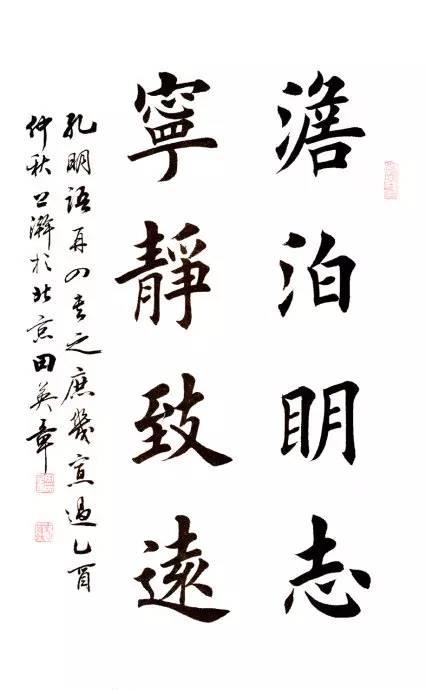 澹泊明志
寧靜致遠
孔明語再四書之庶幾寡過乙酉
仲秋 於北京田英章